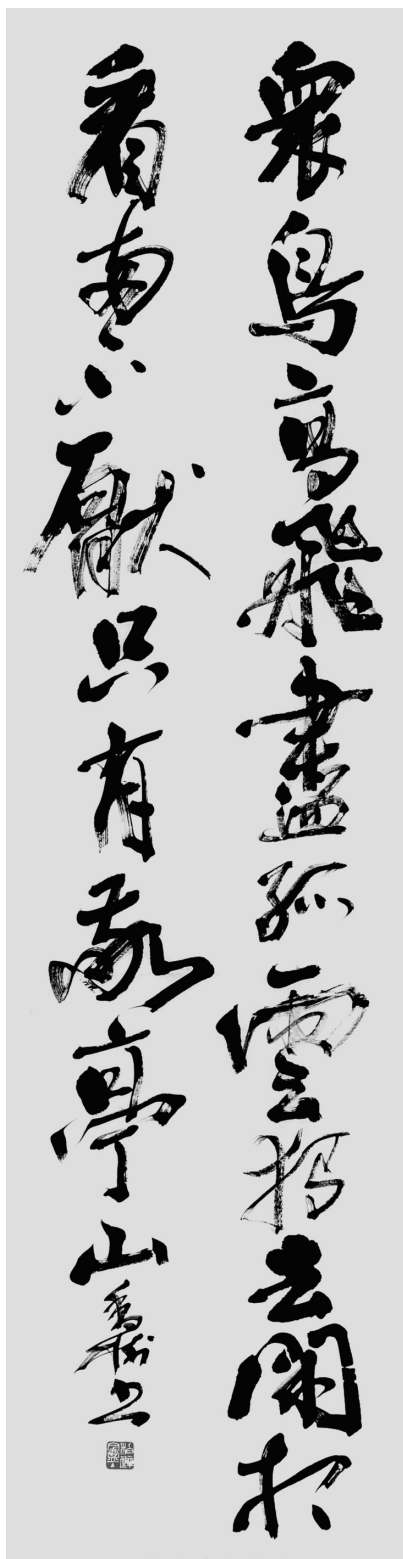 眾鳥高飛盡孤雲獨去閑相
看兩不厭只有敬亭山